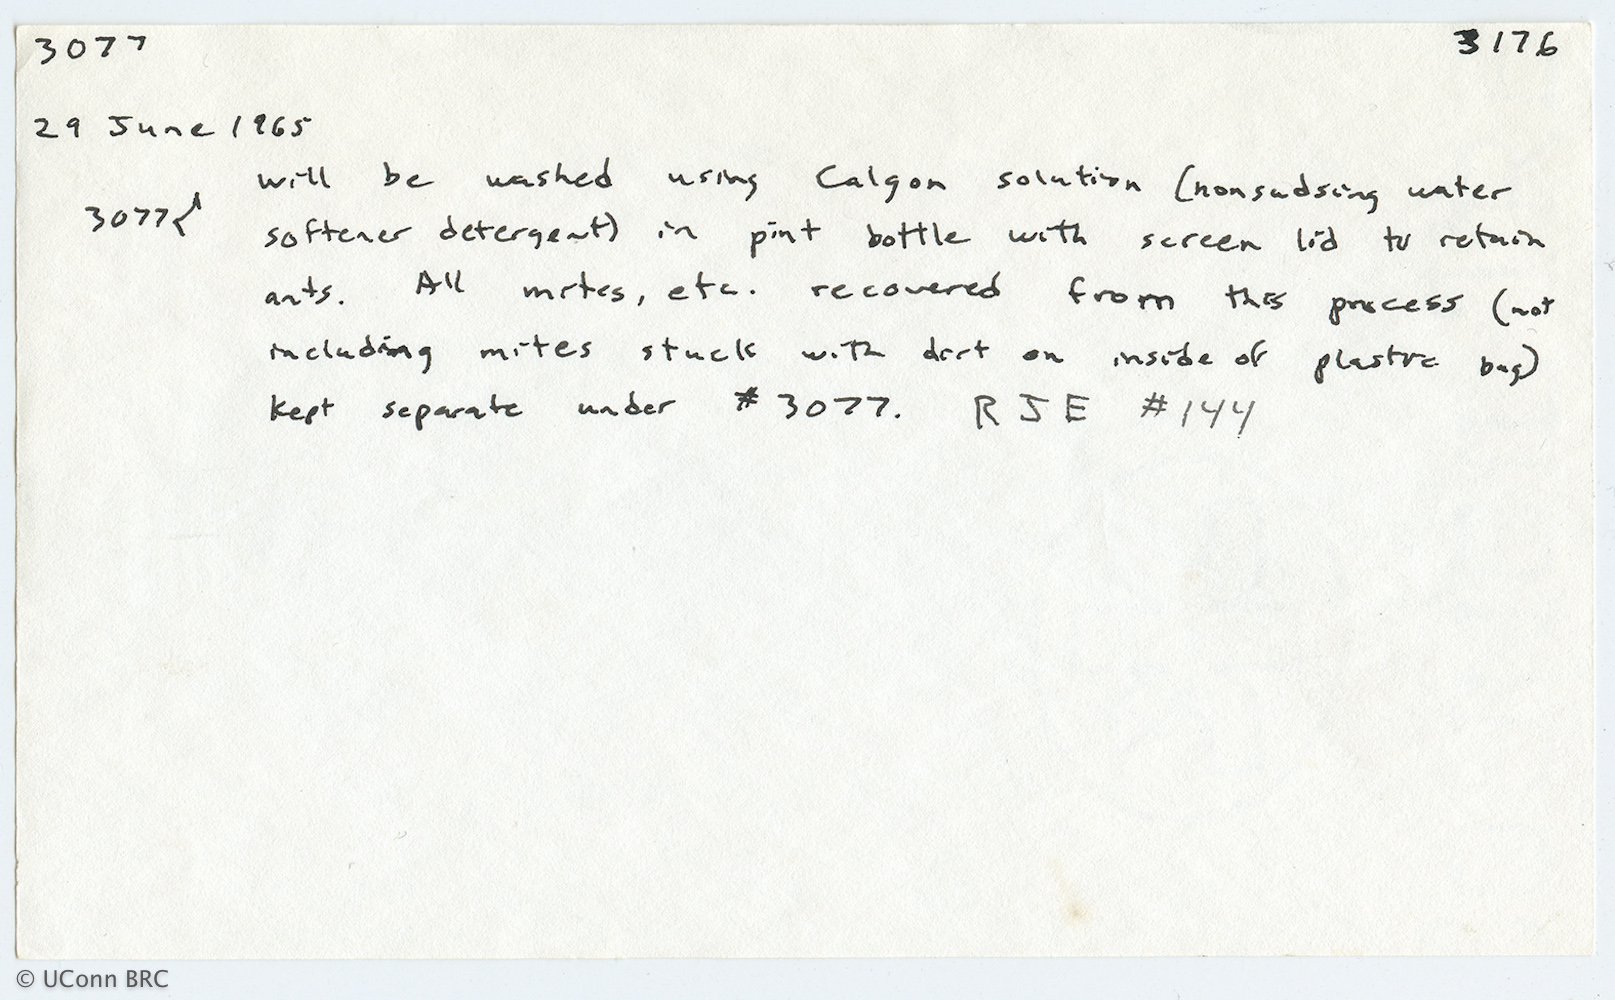 3077 3176
29 June 1965
will be washed using Calgon solution (nonsudsing water
3077
softener detergent) in pint bottle with screen lid to retain
ants. All mites, etc. recovered from this process (not
including mites stuck with dirt on inside of plastic bag)
kept separate under #3077. RJE #144
© UConn BRC